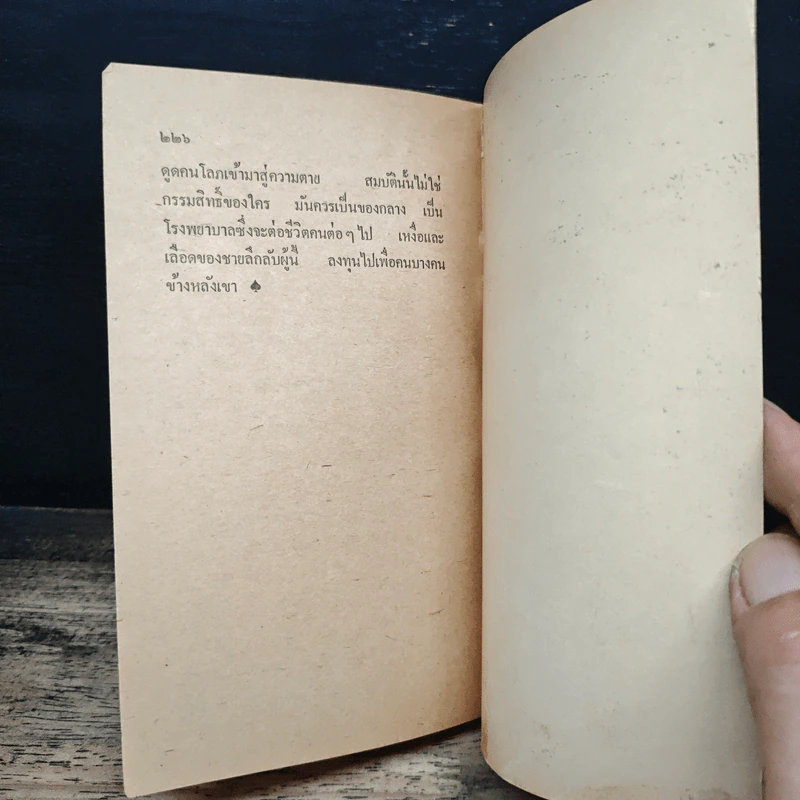 ๒๒๖
ดูดคนโลภเข้ามาสู่ความตาย สมบัตินั้นไม่ใช่
กรรมสิทธิ์ของใคร มันควรเป็นของกลาง เป็น
โรงพยาบาลซึ่งจะต่อชีวิตคนต่อๆไป เหงื่อและ
เลือดของชายลึกลับผู้นี้ ลงทุนไปเพื่อคนบางคน
ข้างหลังเขา ♠